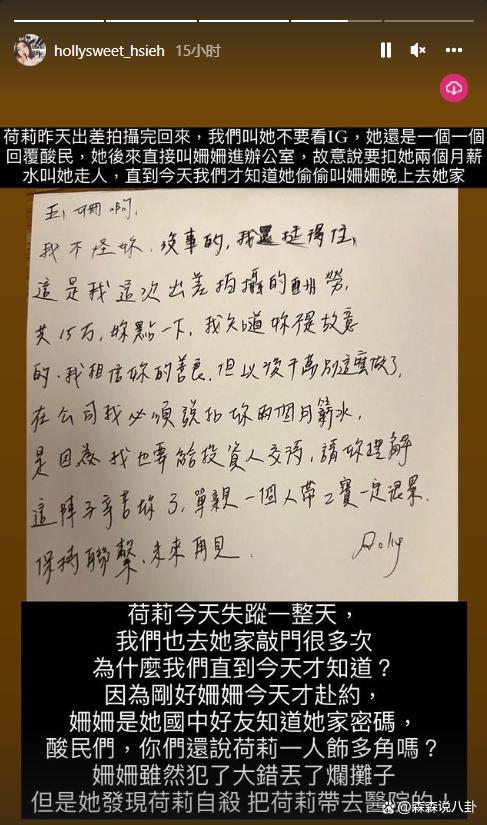 hollysweet_hsieh 15小时
荷莉昨天出差拍攝完回來，我們叫她不要看IG，她還是一個一個
回覆酸民，她後來直接叫姍姍進辦公室，故意說要扣她兩個月薪
水叫她走人，直到今天我們才知道她偷偷叫姍姍晚上去她家
姍啊，
我不怪妳、沒事的，我還挺得住，
這是我這次出差拍攝的酬勞，
共15万，妳點一下，我知道妳沒故意
的、我相信妳的善良，但以後千萬別這麼做了，
在公司我必須說扣妳兩個月薪水，
是因為我也要給投資人交待，請妳理解
這陣子辛苦妳了，單親一個人帶2寶一定很累
保持聯繫、未來再見．
Holly
荷莉今天失蹤一整天，
我們也去她家敲門很多次
為什麼我們直到今天才知道？
因為剛好姍姍今天才赴約，
姍姍是她國中好友知道她家密碼，
酸民們，你們還說荷莉一人飾多角嗎？
姍姍雖然犯了大錯丟了爛攤子
但是她發現荷莉自殺 把荷莉帶去醫院的！
森森说八卦